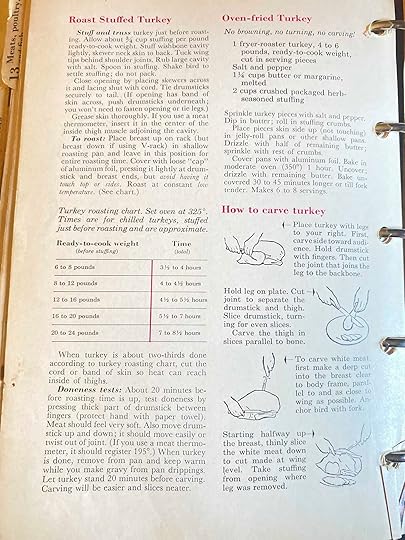 13 Meats, poultry
Roast Stuffed Turkey
Stuff and truss turkey just before roast-
ing. Allow about ¾ cup stuffing per pound
ready-to-cook weight. Stuff wishbone cavity
lightly, skewer neck skin to back. Tuck wing
tips behind shoulder joints. Rub large cavity
with salt. Spoon in stuffing. Shake bird to
settle stuffing; do not pack.
Close opening by placing skewers across
it and lacing shut with cord. Tie drumsticks
securely to tail. (If opening has band of
skin across, push drumsticks underneath;
you won't need to fasten opening or tie legs.)
Grease skin thoroughly. If you use a meat
thermometer, insert it in the center of the
inside thigh muscle adjoining the cavity.
To roast: Place breast up on rack (but
breast down if using V-rack) in shallow
roasting pan and leave in this position for
entire roasting time. Cover with loose "cap"
of aluminum foil, pressing it lightly at drum-
stick and breast ends, but avoid having it
touch top or sides. Roast at constant low
temperature. (See chart.)
Turkey roasting chart. Set oven at 325°.
Times are for chilled turkeys, stuffed
just before roasting and are approximate.
Ready-to-cook weight Time
(before stuffing) (total)
6 to 8 pounds 3½ to 4 hours
8 to 12 pounds 4 to 4½ hours
12 to 16 pounds 4½ to 5½ hours
16 to 20 pounds 5½ to 7 hours
20 to 24 pounds 7 to 8½ hours
When turkey is about two-thirds done
according to turkey roasting chart, cut the
cord or band of skin so heat can reach
inside of thighs.
Doneness tests: About 20 minutes be-
fore roasting time is up, test doneness by
pressing thick part of drumstick between
fingers (protect hand with paper towel).
Meat should feel very soft. Also move drum-
stick up and down; it should move easily or
twist out of joint. (If you use a meat thermo-
meter, it should register 195°.) When turkey
is done, remove from pan and keep warm
while you make gravy from pan drippings.
Let turkey stand 20 minutes before carving.
Carving will be easier and slices neater.
Oven-fried Turkey
No browning, no turning, no carving!
1 fryer-roaster turkey, 4 to 6
pounds, ready-to-cook weight,
cut in serving pieces
Salt and pepper
1¼ cups butter or margarine,
melted
2 cups crushed packaged herb-
seasoned stuffing
Sprinkle turkey pieces with salt and pepper.
Dip in butter; roll in stuffing crumbs.
Place pieces skin side up (not touching)
in jelly-roll pans or other shallow pans.
Drizzle with half of remaining butter;
sprinkle with rest of crumbs.
Cover pans with aluminum foil. Bake in
moderate oven (350°) 1 hour. Uncover;
drizzle with remaining butter. Bake un-
covered 30 to 45 minutes longer or till fork
tender. Makes 6 to 8 servings.
How to carve turkey
Place turkey with legs
to your right. First,
carve side toward audi-
ence. Hold drumstick
with fingers. Then cut
the joint that joins the
leg to the backbone.
Hold leg on plate. Cut
joint to separate the
drumstick and thigh.
Slice drumstick, turn-
ing for even slices.
Carve the thigh in
slices parallel to bone.
To carve white meat,
first make a deep cut
into the breast clear
to body frame, paral-
lel to and as close to
wing as possible. An-
chor bird with fork.
Starting halfway up
the breast, thinly slice
the white meat down
to cut made at wing
level. Take stuffing
from opening where
leg was removed.